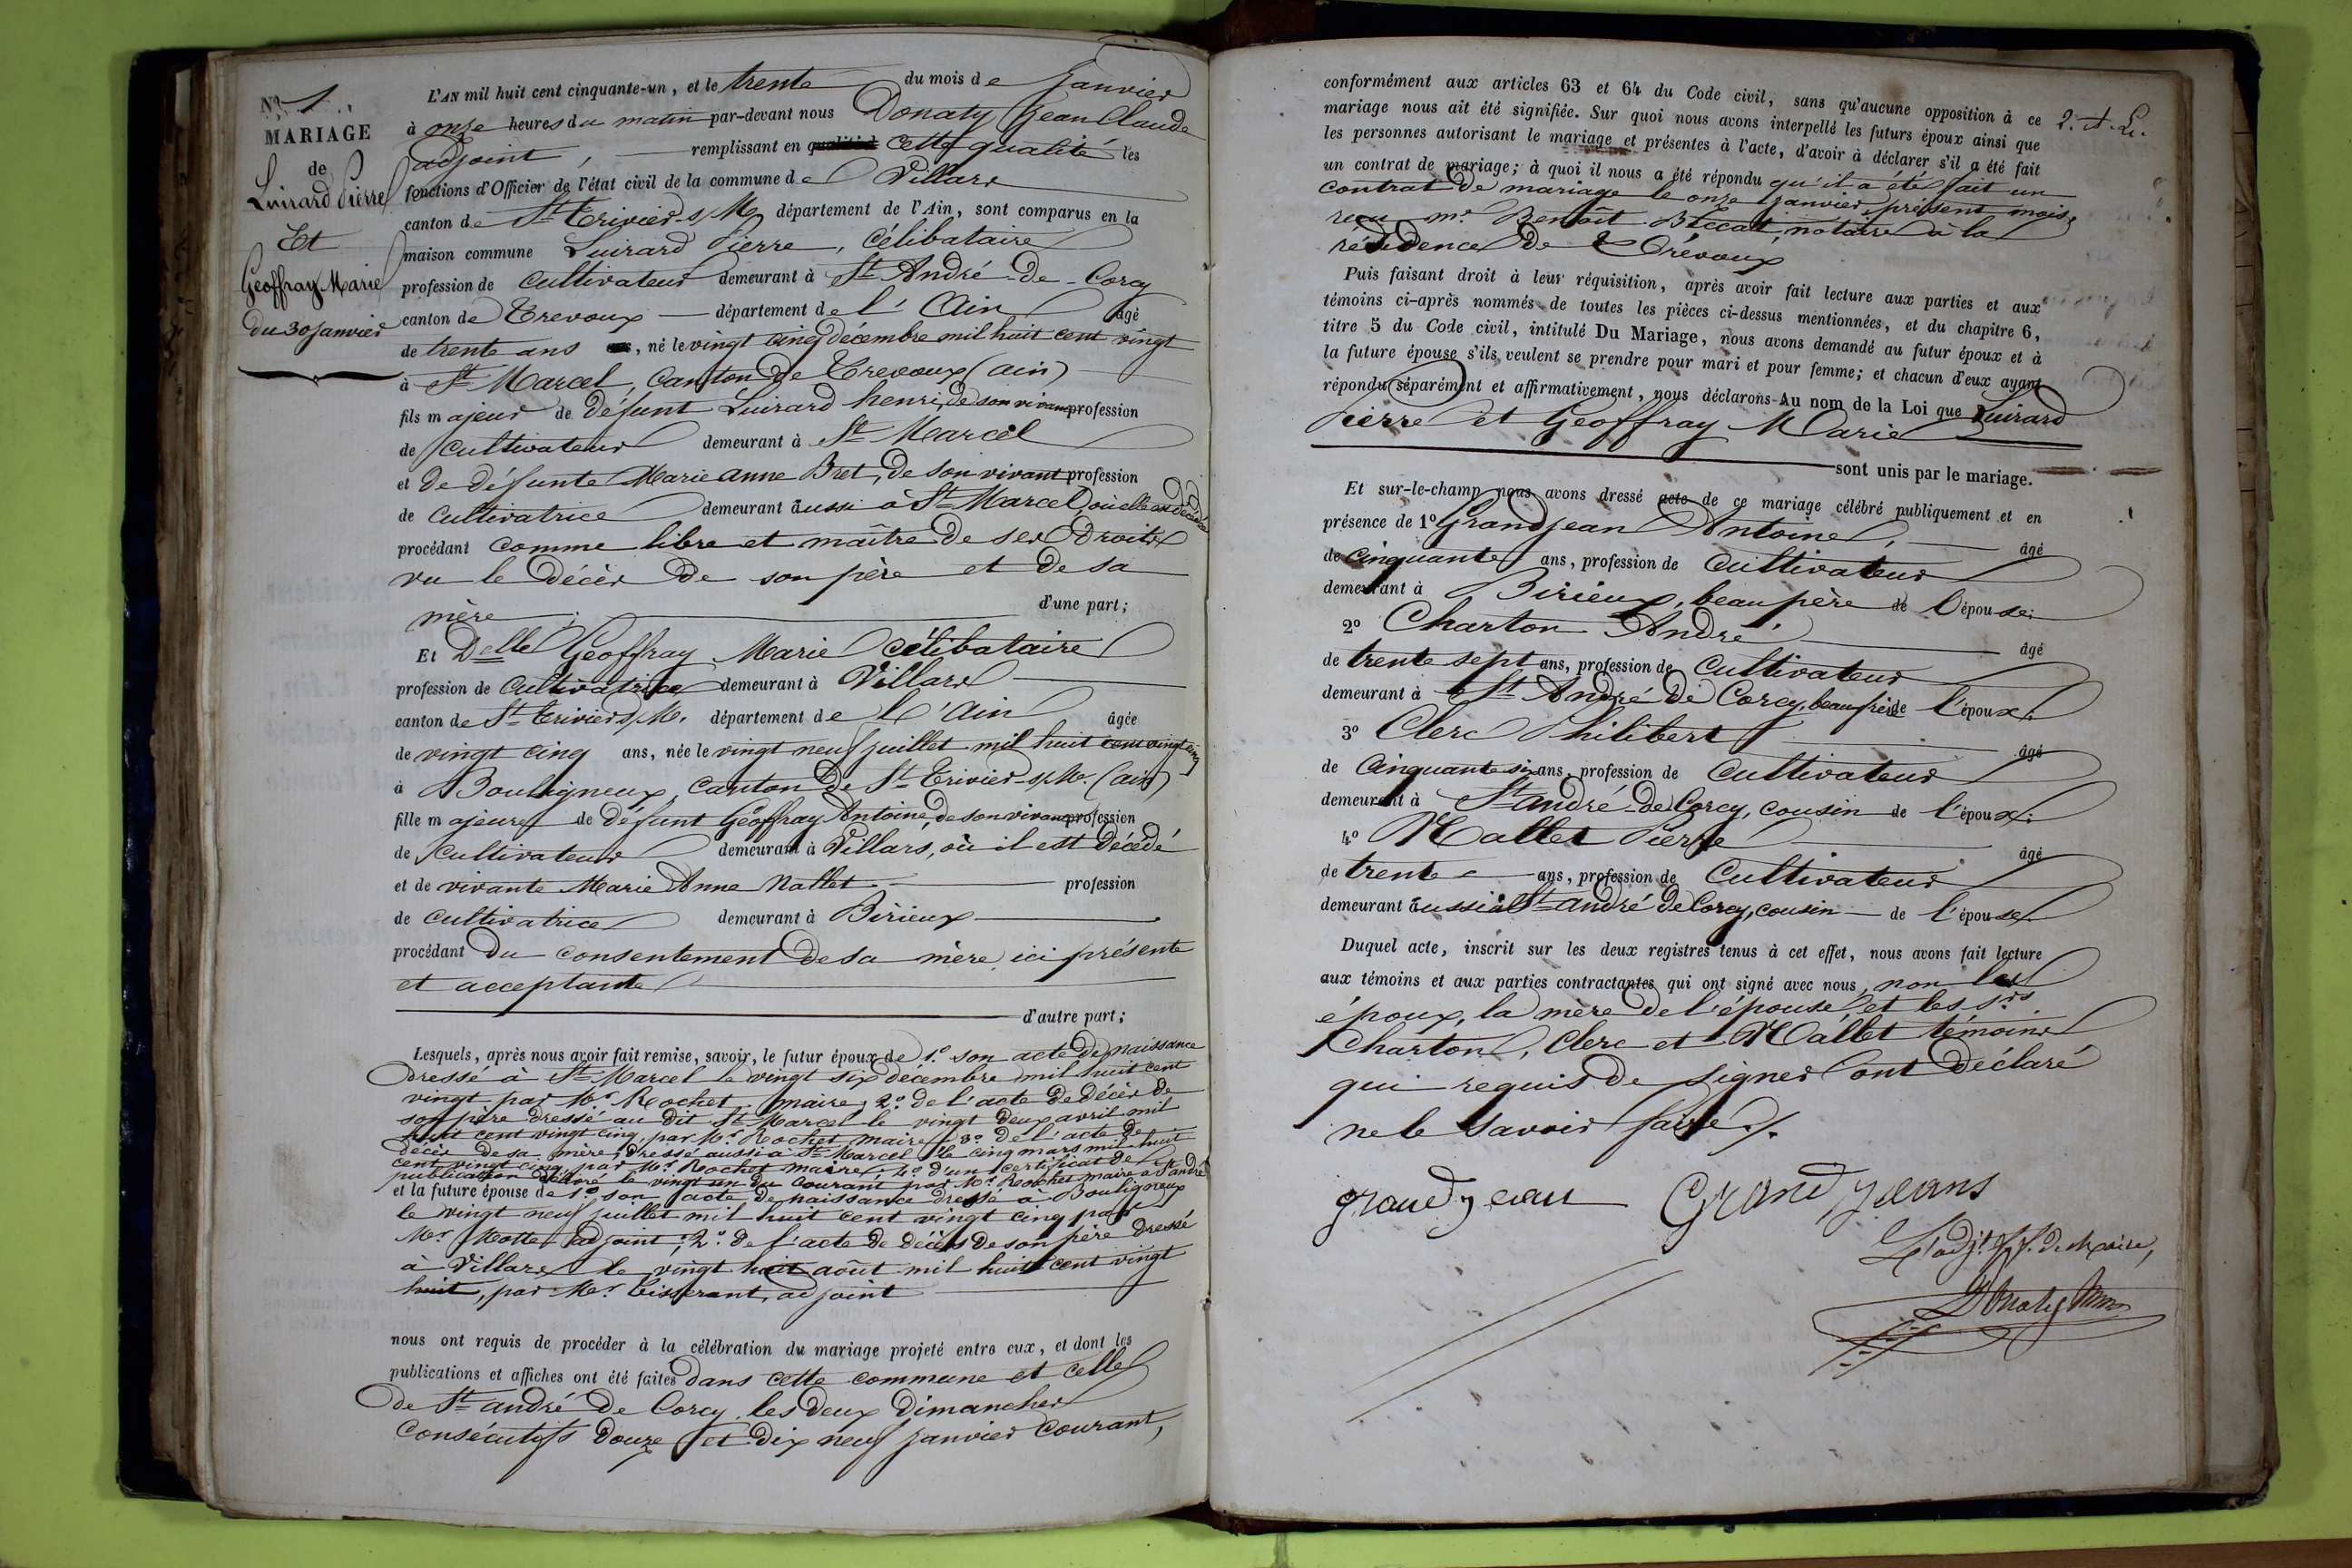 N.º 1.
MARIAGE
de
Luirard Pierre
Et
Geoffray Marie
du 30 janvier
L'AN mil huit cent cinquante-un, et le trente du mois de Janvier
à onze heures du matin par-devant nous Donaty Jean Claude
adjoint, remplissant en cette qualité les
fonctions d'Officier de l'état civil de la commune de Villars
canton de St Trivier s/M, département de l'Ain, sont comparus en la
maison commune Luirard Pierre, célibataire
profession de cultivateur demeurant à St André-de-Corcy
canton de Trevoux département de l'Ain âgé
de trente ans, né le vingt cinq décembre mil huit cent vingt
à St Marcel, Canton de Trevoux (ain)
fils majeur de défunt Luirard henri, de son vivant profession
de cultivateur demeurant à St Marcel
et de défunte Marie anne Bret, de son vivant profession
de cultivatrice demeurant aussi à St Marcel, où elle est décédée
procédant comme libre et maître de ses droits
vu le décès de son père et de sa
mère d'une part;
Et Delle Geoffray Marie célibataire
profession de cultivatrice demeurant à Villars
canton de St Trivier s/M. département de l'Ain âgée
de vingt cinq ans, née le vingt neuf juillet mil huit cent vingt cinq
à Bouligneux, Canton de St Trivier-s/M. (ain)
fille majeure de défunt Geoffray Antoine, de son vivant profession
de cultivateur demeurant à Villars, où il est décédé
et de vivante Marie Anne Nallet profession
de cultivatrice demeurant à Birieux
procédant du consentement de sa mère, ici présente
et acceptante
d'autre part;
Lesquels, après nous avoir fait remise, savoir, le futur époux de 1.º son acte de naissance
dressé à St Marcel le vingt six décembre mil huit cent
vingt par Mr Rochet maire, 2.º de l'acte de décès de
son père dressé au dit St Marcel le vingt deux avril mil
huit cent vingt cinq, par Mr Rochet maire, 3.º de l'acte de
décès de sa mère, dressé aussi à St Marcel le cinq mars mil huit
cent vingt cinq, par Mr Rochet maire, 4.º d'un certificat de
publication délivré le vingt un du courant par Mr Rochet maire à St andré
et la future épouse de 1.º son acte de naissance dressé à Bouligneux
le vingt neuf juillet mil huit cent vingt cinq par
Mr Mottet adjoint; 2.º de l'acte de décès de son père dressé
à Villars le vingt huit août mil huit cent vingt
huit, par Mr Tisserant, adjoint
nous ont requis de procéder à la célébration du mariage projeté entre eux, et dont les
publications et affiches ont été faites dans cette commune et celle
de St andré de Corcy les deux dimanches
consécutifs douze et dix neuf janvier courant,
conformément aux articles 63 et 64 du Code civil, sans qu'aucune opposition à ce
mariage nous ait été signifiée. Sur quoi nous avons interpellé les futurs époux ainsi que
les personnes autorisant le mariage et présentes à l'acte, d'avoir à déclarer s'il a été fait
un contrat de mariage; à quoi il nous a été répondu qu'il a été fait un
contrat de mariage le onze janvier présent mois,
reçu mr Benoît notaire à la
résidence de Trévoux
Puis faisant droit à leur réquisition, après avoir fait lecture aux parties et aux
témoins ci-après nommés de toutes les pièces ci-dessus mentionnées, et du chapitre 6,
titre 5 du Code civil, intitulé Du Mariage, nous avons demandé au futur époux et à
la future épouse s'ils veulent se prendre pour mari et pour femme; et chacun d'eux ayant
répondu séparément et affirmativement, nous déclarons Au nom de la Loi que Luirard
Pierre et Geoffray Marie
sont unis par le mariage.
Et sur-le-champ nous avons dressé acte de ce mariage célébré publiquement et en
présence de 1º Grandjean Antoine, âgé
de cinquante ans, profession de cultivateur
demeurant à Birieux, beau père de l'épouse;
2º Charton André âgé
de trente sept ans, profession de cultivateur
demeurant à St André de Corcy, beau frère de l'époux;
3º Clerc Philibert âgé
de cinquante six ans, profession de cultivateur
demeurant à St andré-de Corcy, cousin de l'époux;
4º Mallet Pierre âgé
de trente ans, profession de cultivateur
demeurant aussi à St andré de Corcy, cousin de l'épouse
Duquel acte, inscrit sur les deux registres tenus à cet effet, nous avons fait lecture
aux témoins et aux parties contractantes qui ont signé avec nous, non les
époux, la mère de l'épouse, et les srs
Charton, Clerc et Mallet témoins
qui requis de signer ont déclaré
ne le savoir faire./.
grandjean Grandjeans
L'adjt de Maire,
Donaty